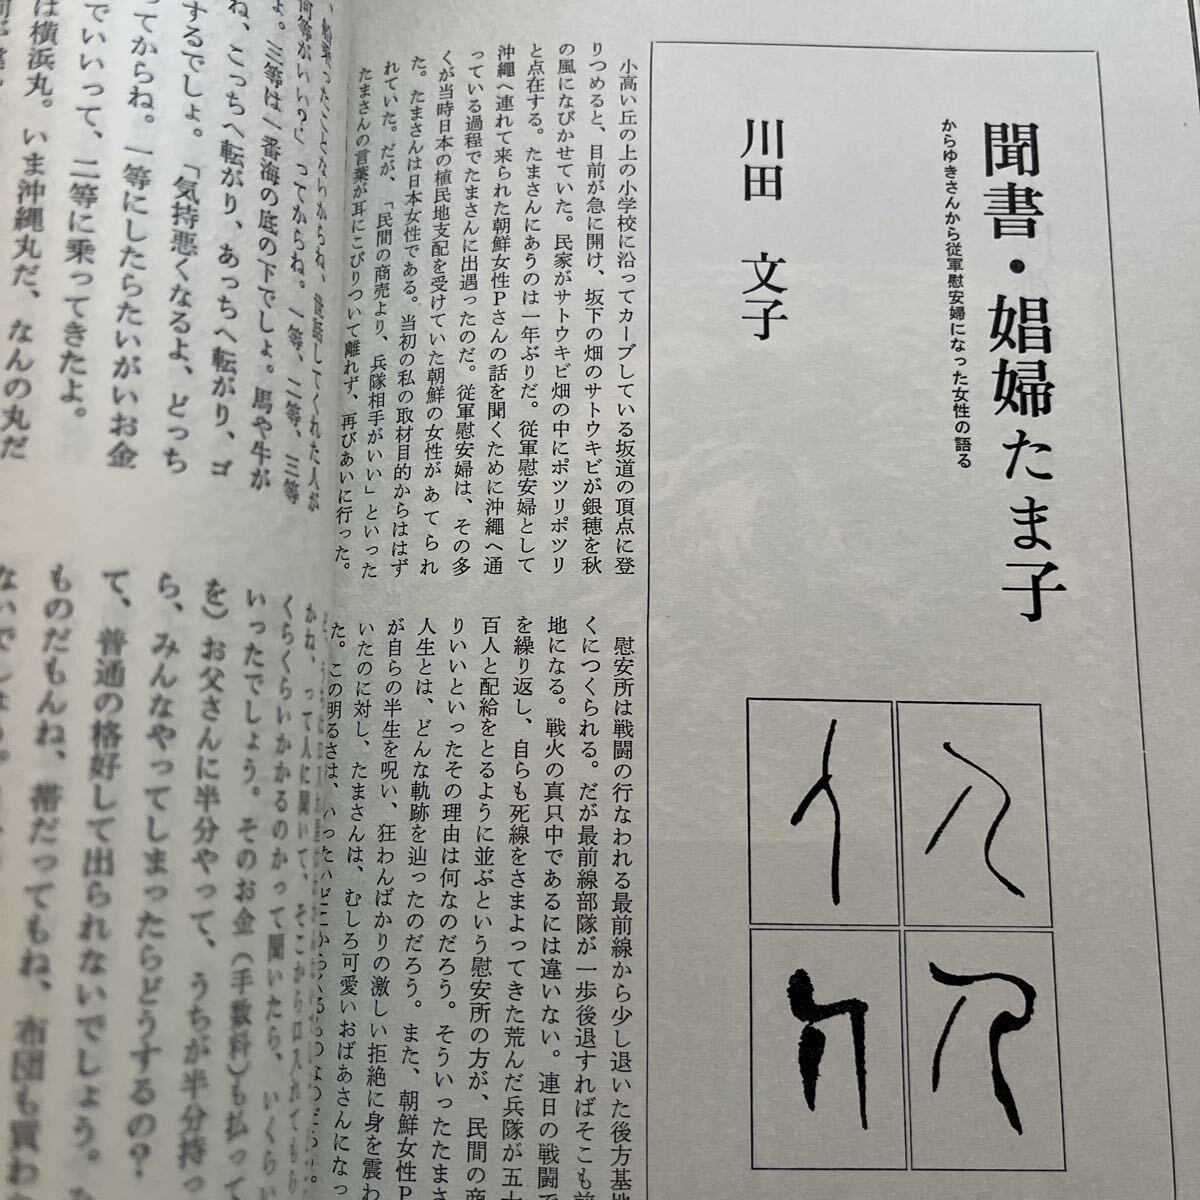 聞書・娼婦たま子
からゆきさんから従軍慰安婦になった女性の語る
川田 文子
小高い丘の上の小学校に沿ってカーブしている坂道の頂点に登
りつめると、目前が急に開け、坂下の畑のサトウキビが銀穂を秋
の風になびかせていた。民家がサトウキビ畑の中にポツリポツリ
と点在する。たまさんにあうのは一年ぶりだ。従軍慰安婦として
沖縄へ連れて来られた朝鮮女性Pさんの話を聞くために沖縄へ通
っている過程でたまさんに出遇ったのだ。従軍慰安婦は、その多
くが当時日本の植民地支配を受けていた朝鮮の女性があてられ
た。たまさんは日本女性である。当初の私の取材目的からははず
れていた。だが、「民間の商売より、兵隊相手がいい」といった
たまさんの言葉が耳にこびりついて離れず、再びあいに行った。
慰安所は戦闘の行なわれる最前線から少し退いた後方基地
くにつくられる。だが最前線部隊が一歩後退すればそこも前
地になる。戦火の真只中であるには違いない。連日の戦闘で
を繰り返し、自らも死線をさまよってきた荒んだ兵隊が五十
百人と配給をとるように並ぶという慰安所の方が、民間の商
りいいといったその理由は何なのだろう。そういったたまさ
人生とは、どんな軌跡を辿ったのだろう。また、朝鮮女性P
が自らの半生を呪い、狂わんばかりの激しい拒絶に身を震わ
いたのに対し、たまさんは、むしろ可愛いおばあさんになっ
た。この明るさは、いったいどこからくるものなのだろう。
世話してくれた人が
何等がいい？」ってからね。一等、二等、三等
よ。三等は一番海の底の下でしょ。馬や牛が
ね、こっちへ転がり、あっちへ転がり、ゴ
するでしょ。「気持悪くなるよ、どっち
ってからね。一等にしたらたいがいお金
でいいって、二等に乗ってきたよ。
は横浜丸。いま沖縄丸だ、なんの丸だ
かね、って人に聞いて、そこから口入れてもら
くらくらいかかるのかって聞いたら、いくらい
いったでしょう。そのお金（手数料）も払って
を）お父さんに半分やって、うちが半分持っ
ら、みんなやってしまったらどうするの？
て、普通の格好して出られないでしょう。
ものだもんね、帯だってもね、布団も買わ
ないでしょう。